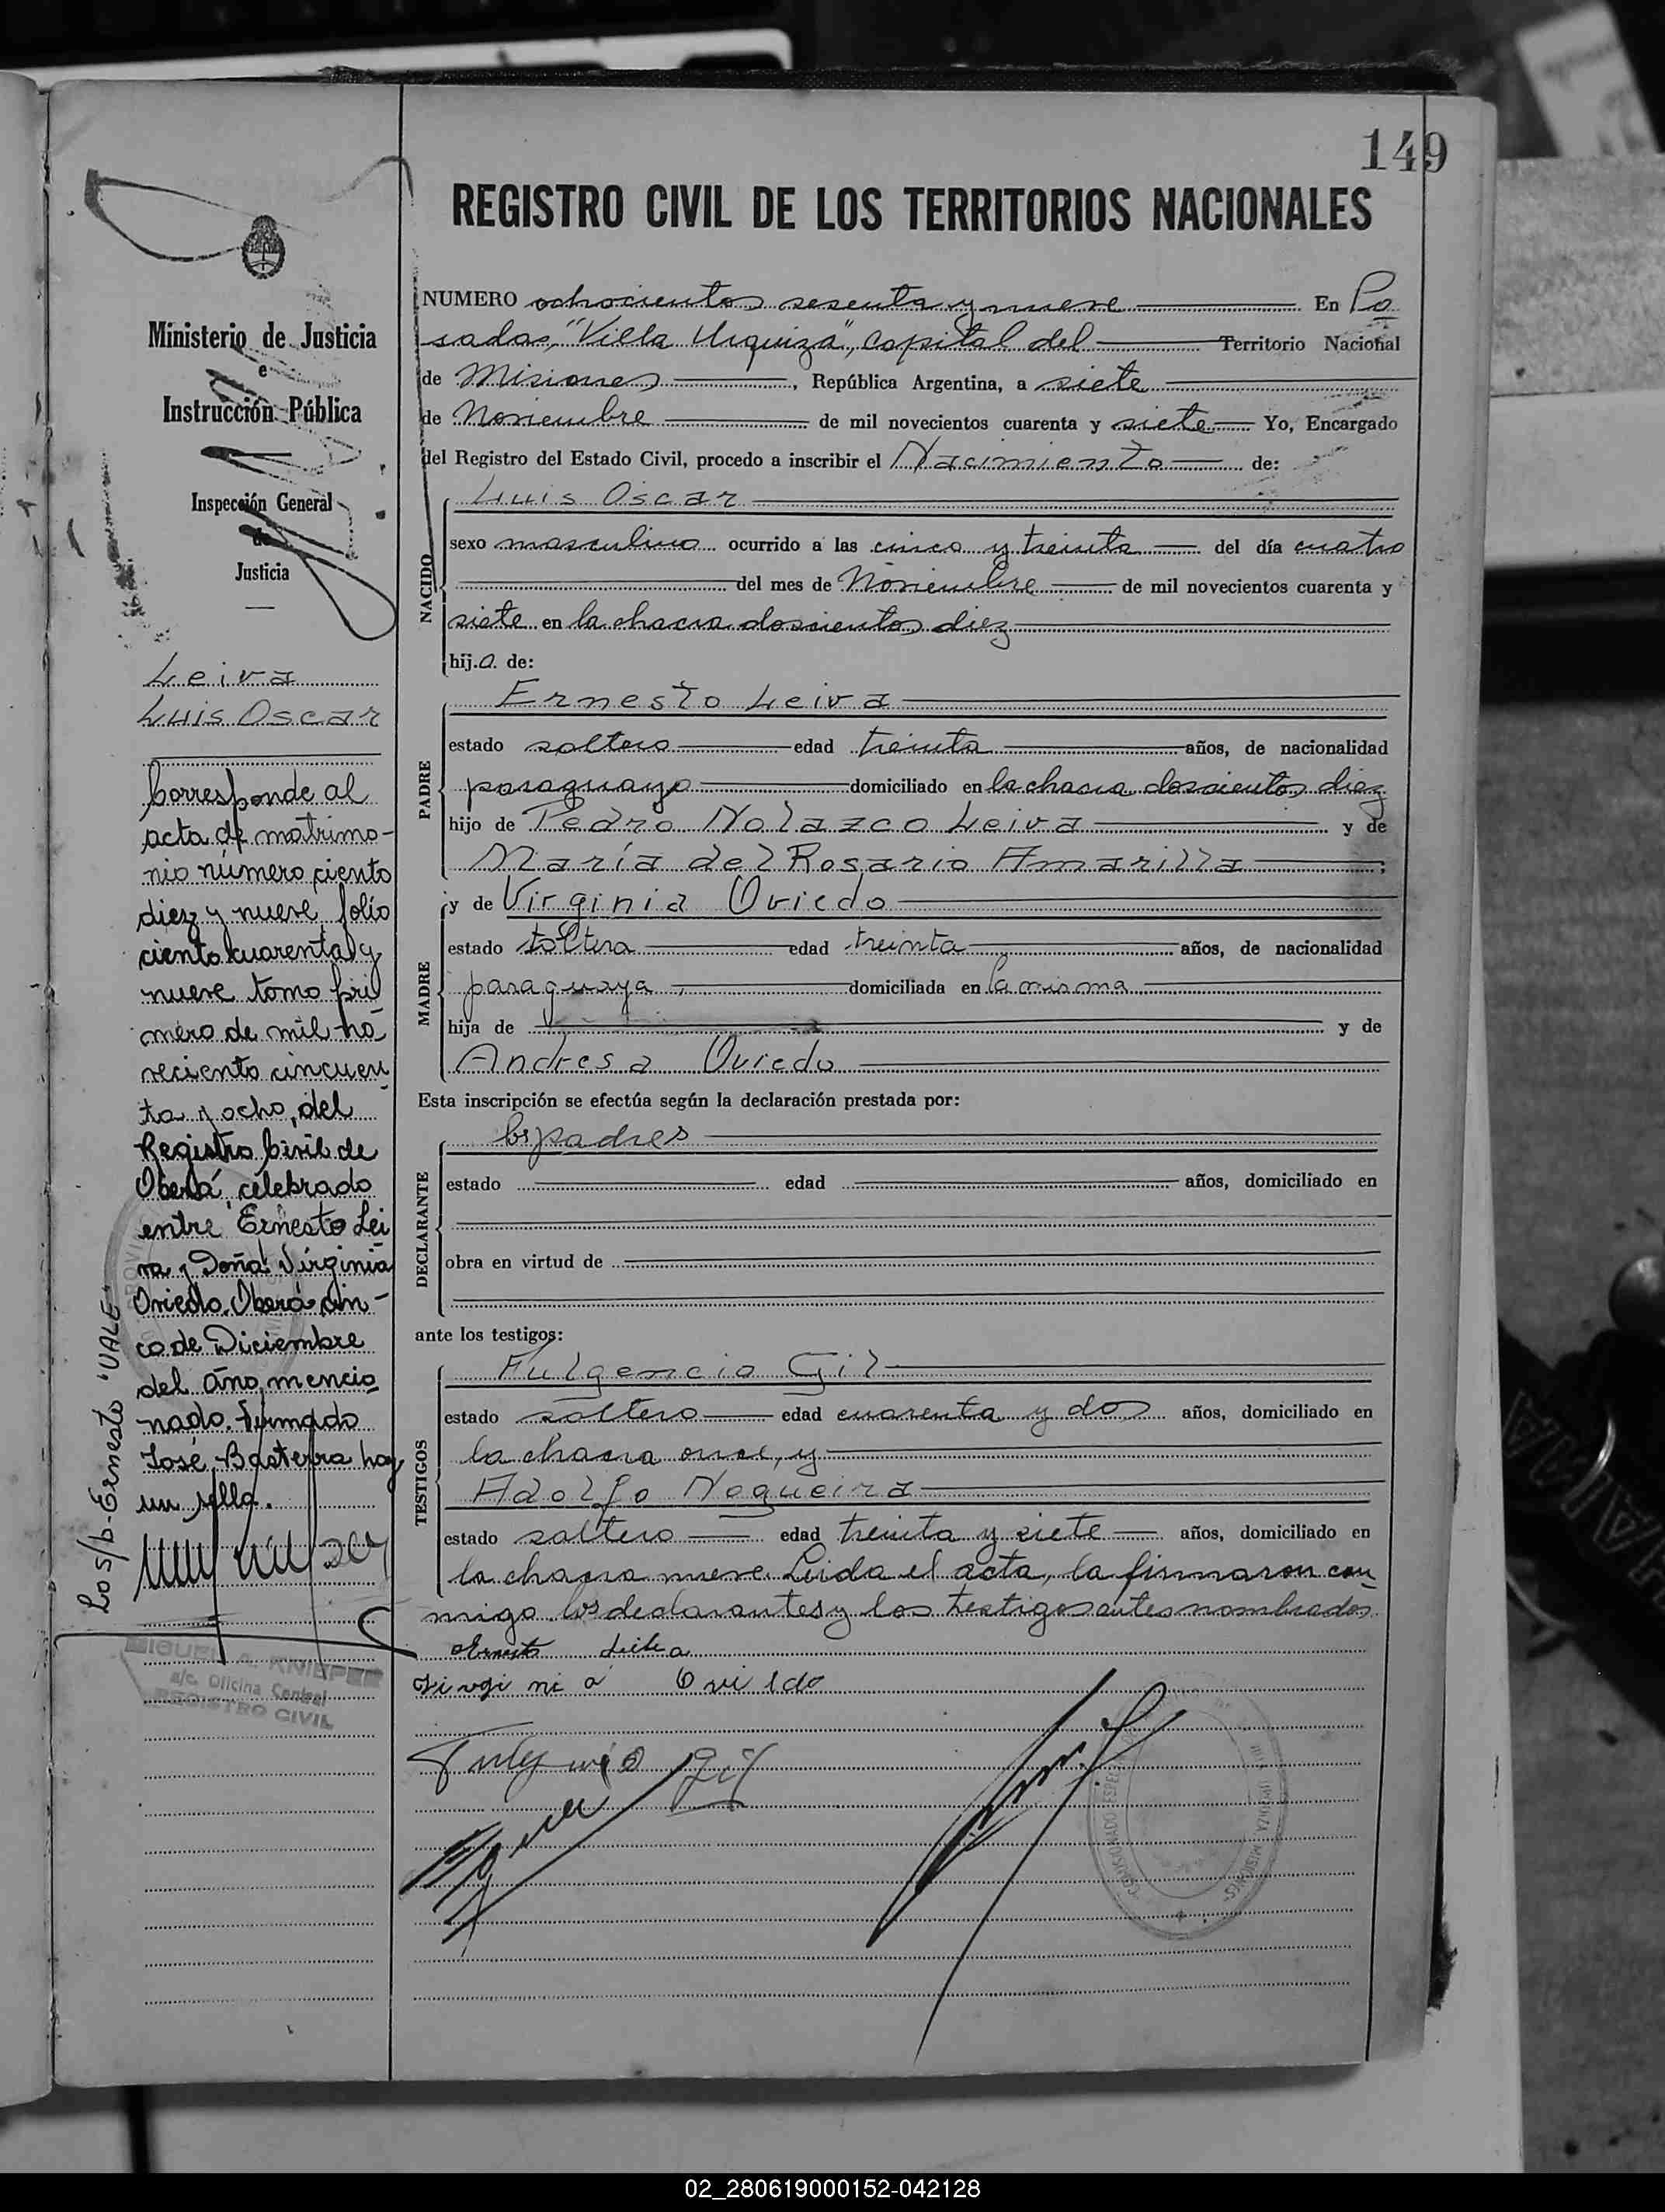 149
REGISTRO CIVIL DE LOS TERRITORIOS NACIONALES
Ministerio de Justicia
e
Instrucción Pública
Inspección General
de
Justicia
Leiva
Luis Oscar
Corresponde al
acta de matrimo-
nio número ciento
diez y nueve folio
ciento cuarenta y
nueve tomo pri
mero de mil no-
veciento cincuen
ta y ocho, del
Registro Civil de
Oberá celebrado
entre Ernesto Lei
va y Doña Virginia
Oviedo. Oberá cin-
co de Diciembre
del año mencio
nado. Firmado
José Basterra hay
un sello.
Lo s/b-Ernesto "VALE"
MIGUEL A. KNIEPER
a/c. Oficina Central
REGISTRO CIVIL
NUMERO ochocientos sesenta y nueve En Po
sadas, "Villa Urquiza", capital del Territorio Nacional
de Misiones, República Argentina, a siete
de Noviembre de mil novecientos cuarenta y siete Yo, Encargado
del Registro del Estado Civil, procedo a inscribir el Nacimiento de:
NACIDO
Luis Oscar
sexo masculino ocurrido a las cinco y treinta del día cuatro
del mes de Noviembre de mil novecientos cuarenta y
siete en la chacra doscientos diez
hij.o. de:
PADRE
Ernesto Leiva
estado soltero edad treinta años, de nacionalidad
paraguayo domiciliado en la chacra doscientos diez
hijo de Pedro Nolazco Leiva y de
María del Rosario Amarilla ;
MADRE
y de Virginia Oviedo
estado soltera edad treinta años, de nacionalidad
paraguaya, domiciliada en la misma
hija de y de
Andresa Oviedo
Esta inscripción se efectúa según la declaración prestada por:
DECLARANTE
los padres
estado edad años, domiciliado en
obra en virtud de
ante los testigos:
TESTIGOS
Fulgencio Gil
estado soltero edad cuarenta y dos años, domiciliado en
la chacra once, y
Adolfo Nogueira
estado soltero edad treinta y siete años, domiciliado en
la chacra nueve. Leida el acta, la firmaron con
migo los declarantes y los testigos antes nombrados
Ernesto Leiva
Virgi ni a Ovi edo
Fulgencio Gil
02_280619000152-042128